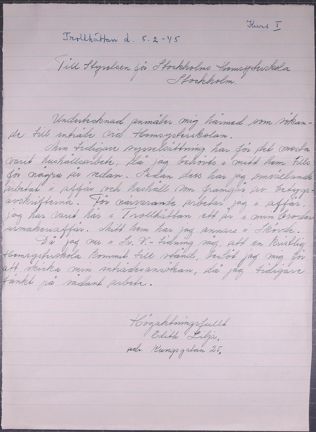 Kurs I
Trollhättan d. 5.2-45
Till Styrelsen för Stockholms Hemsysterskola
Stockholm
Undertecknad anmäler mig härmed som sökan-
de till inträde vid Hemsysterskolan.
Min tidigare sysselsättning har för det mesta
varit hushållsarbete, då jag behövts i mitt hem tills
för några år sedan. Sedan dess har jag omväxlande
arbetat i affär och hushåll som framgår av betygs-
avskrifterna. För närvarande arbetar jag i affär.
Jag har varit här i Trollhättan ett år i min broders
urmakeriaffär. Mitt hem har jag annars i Skövde.
Då jag nu i Sv. V.-tidning såg, att en Kristlig
Hemsysterskola kommit till stånd, beslöt jag mig för
att skicka min inträdesansökan, då jag tidigare
tänkt på sådant arbete.
Högaktningsfullt
Edith Lilja
adr. Kungsgatan 25.